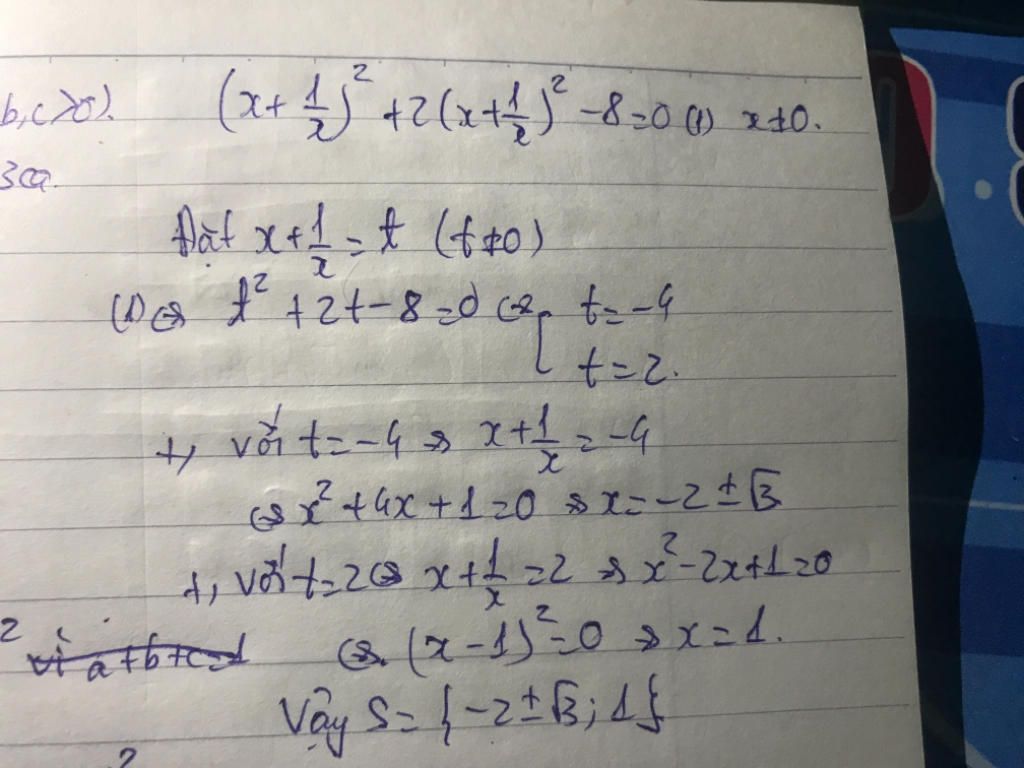 b,c>0). (x+1/x)² +2(x+1/x)² -8=0 (1) x≠0.
3ca.
Đặt x+1/x = t (t≠0)
(1) ⇔ t² +2t-8=0 ⇔ [ t=-4
t=2.
+, với t=-4 ⇒ x+1/x = -4
⇔ x²+4x+1=0 ⇒ x=-2±√3
+, với t=2 ⇔ x+1/x =2 ⇒ x²-2x+1=0
2 vì a+b+c=1 ⇔. (x-1)²=0 ⇒ x=1.
Vậy S= {-2±√3; 1}
2